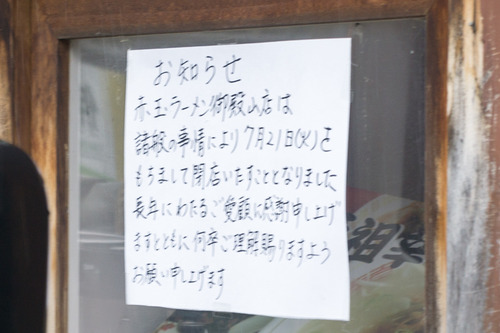 お知らせ
赤玉ラーメン御殿山店は
諸般の事情により7月21日(火)を
もちまして閉店いたすこととなりました
長年にわたるご愛顧に感謝申し上げ
ますとともに何卒ご理解賜りますよう
お願い申し上げます